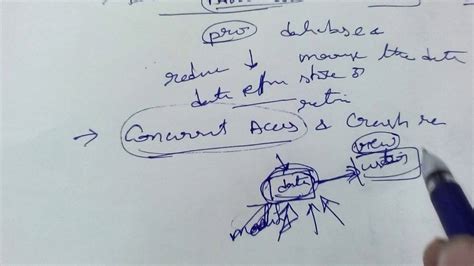 pro databases
reduce ↓ manage the data
data effi store &
retri
→ Concurrent Aces & Crash re
view
data
modify